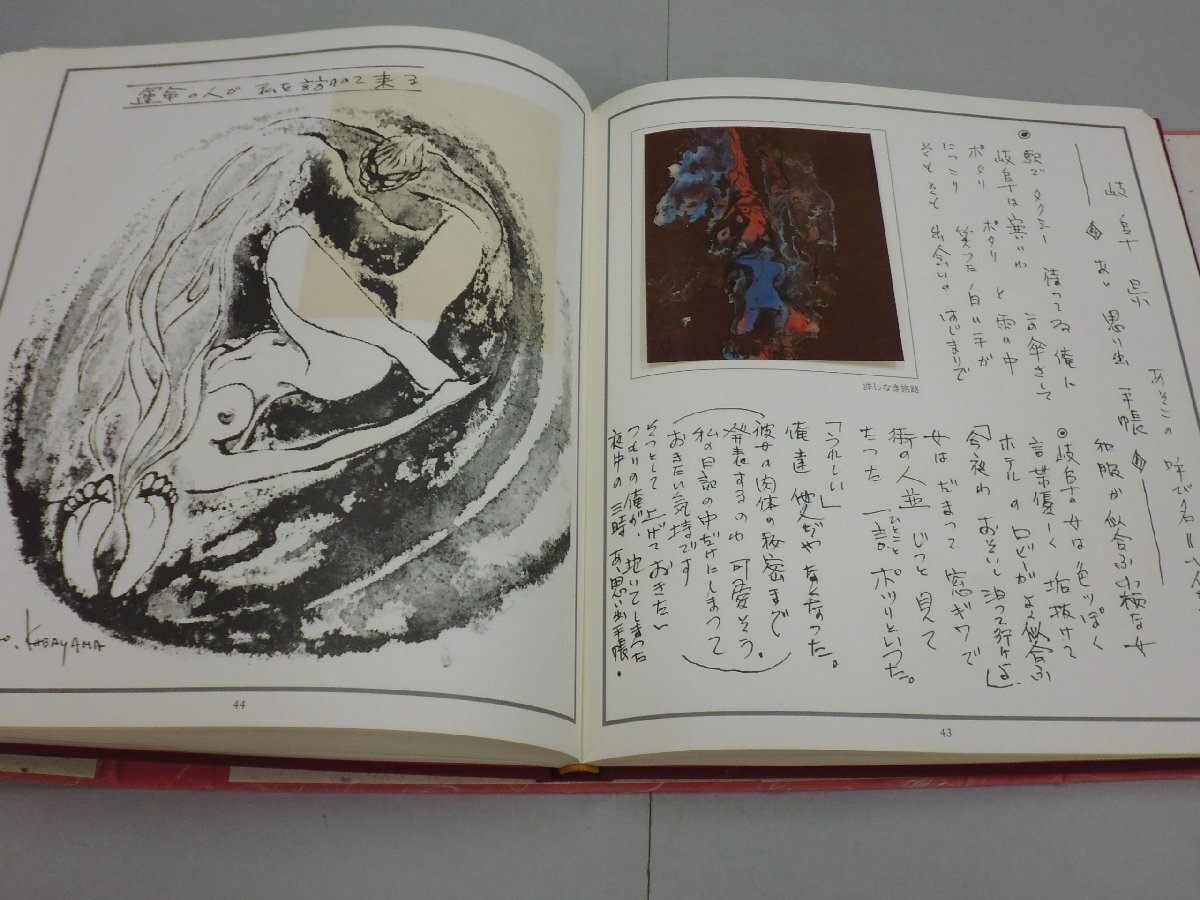 あそこの呼び名=
岐阜県
あゝ思い出手帳
◉駅でタクシー待ってゐ俺に
岐阜は寒いわ と傘さして
ポタリ ポタリ と雨の中
につこり 笑った 白い手が
そもそも 出会いの はじまりで
和服が似合ふ小柄な女
◉岐阜の女は色ッぽく
言葉優しく 垢抜けて
ホテルのロビーがよく似合ふ
「今夜わ おそいし泊って行けよ」
女は だまって 窓ギワで
街の人並 じっと見て
たった 一言 ポツリといった。
ひとこと
「うれしい」
俺達 他人ぢゃなくなった。
(彼女の肉体の秘密まで
発表するのわ 可愛そう。
私の日記の中だけにしまって
おきたい気持です)
そっとして上げておきたい
つもりの俺が、泣いてしまった
夜中の三時 あゝ思い出手帳。
涯しなき旅路
43
運命の人が 私を訪ねて来る
KABAYAMA
44